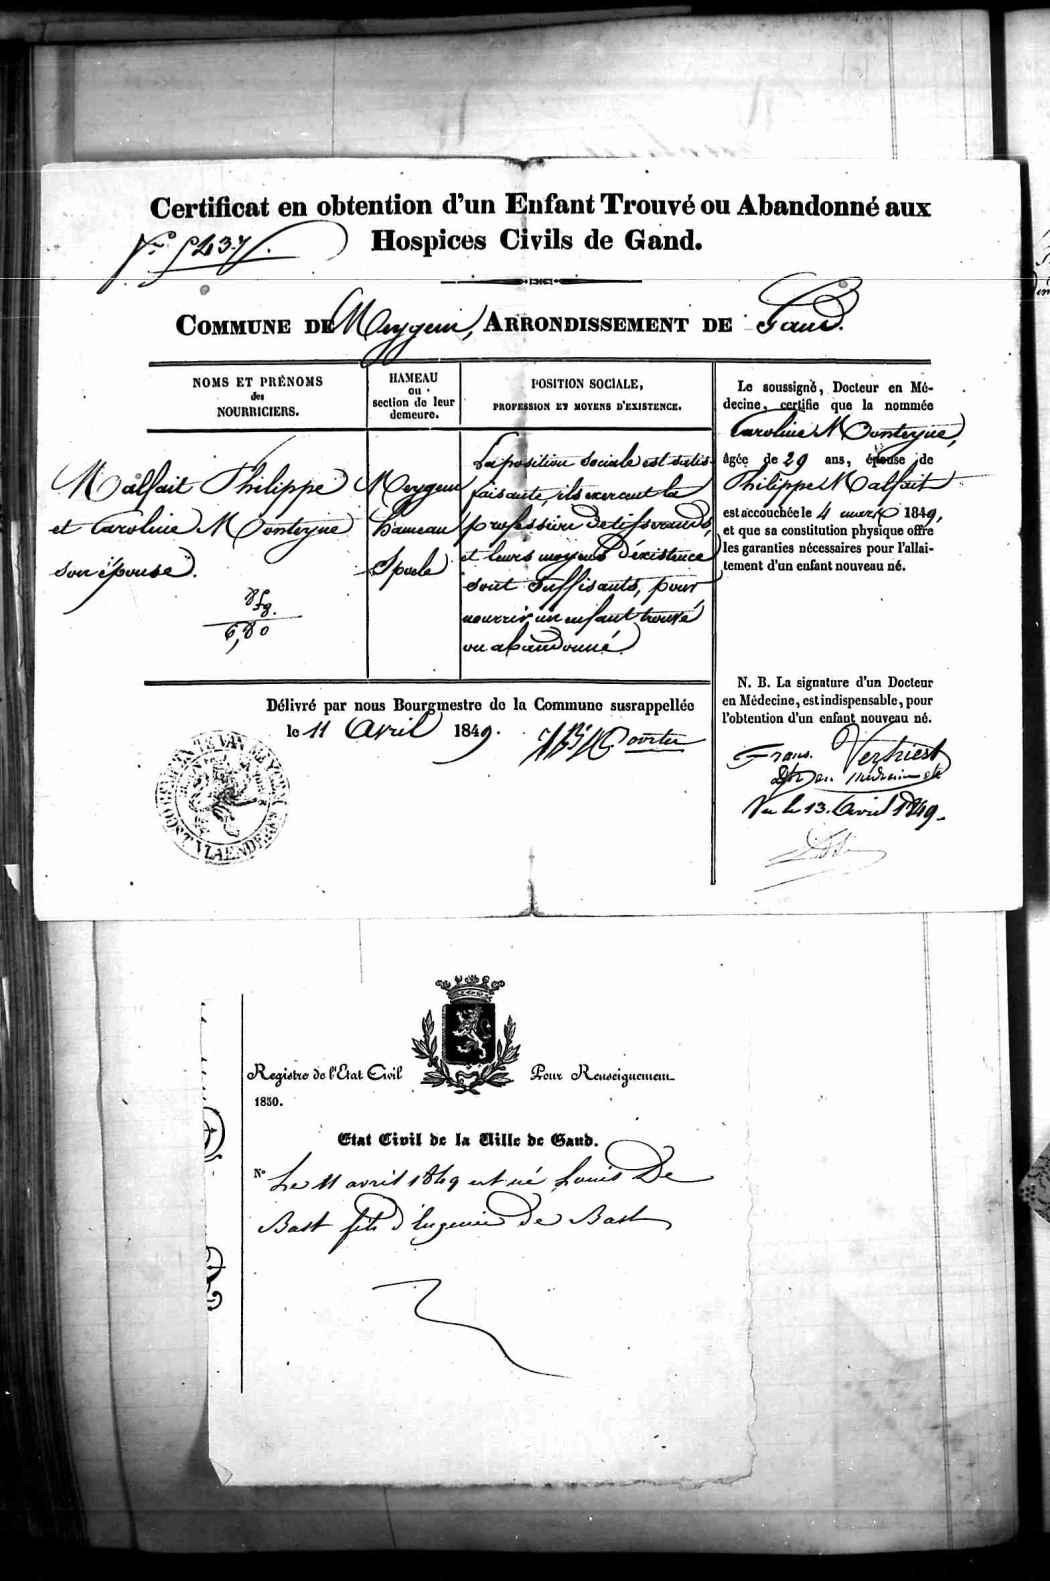 Certificat en obtention d'un Enfant Trouvé ou Abandonné aux
Hospices Civils de Gand.
COMMUNE DE Meygem, ARRONDISSEMENT DE Gand.
NOMS ET PRÉNOMS
des
NOURRICIERS.
HAMEAU
ou
section de leur
demeure.
POSITION SOCIALE,
PROFESSION ET MOYENS D'EXISTENCE.
Malfait Philippe
et Caroline Monteyne
son épouse.
6,80
Meygem
hameau
La position sociale est satis-
faisante, ils exercent la
profession de tisserands,
et leurs moyens d'existence
sont suffisants, pour
nourrir un enfant trouvé
ou abandonné.
Le soussigné, Docteur en Mé-
decine, certifie que la nommée
Caroline Monteyne,
âgée de 29 ans, épouse de
Philippe Malfait
est accouchée le 4 mars 1849,
et que sa constitution physique offre
les garanties nécessaires pour l'allai-
tement d'un enfant nouveau né.
N. B. La signature d'un Docteur
en Médecine, est indispensable, pour
l'obtention d'un enfant nouveau né.
Frans. Verhiest
Vu le 13. Avril 1849.
Délivré par nous Bourgmestre de la Commune susrappellée
le 11 Avril 1849.
GEMEENTE VAN MEYGEM
OOST VLAENDEREN
Registre de l'Etat Civil
Pour Renseignement
1850.
Etat Civil de la Ville de Gand.
N° Le 11 avril 1849 est né Louis De
Bast fils d'Eugenie De Bast